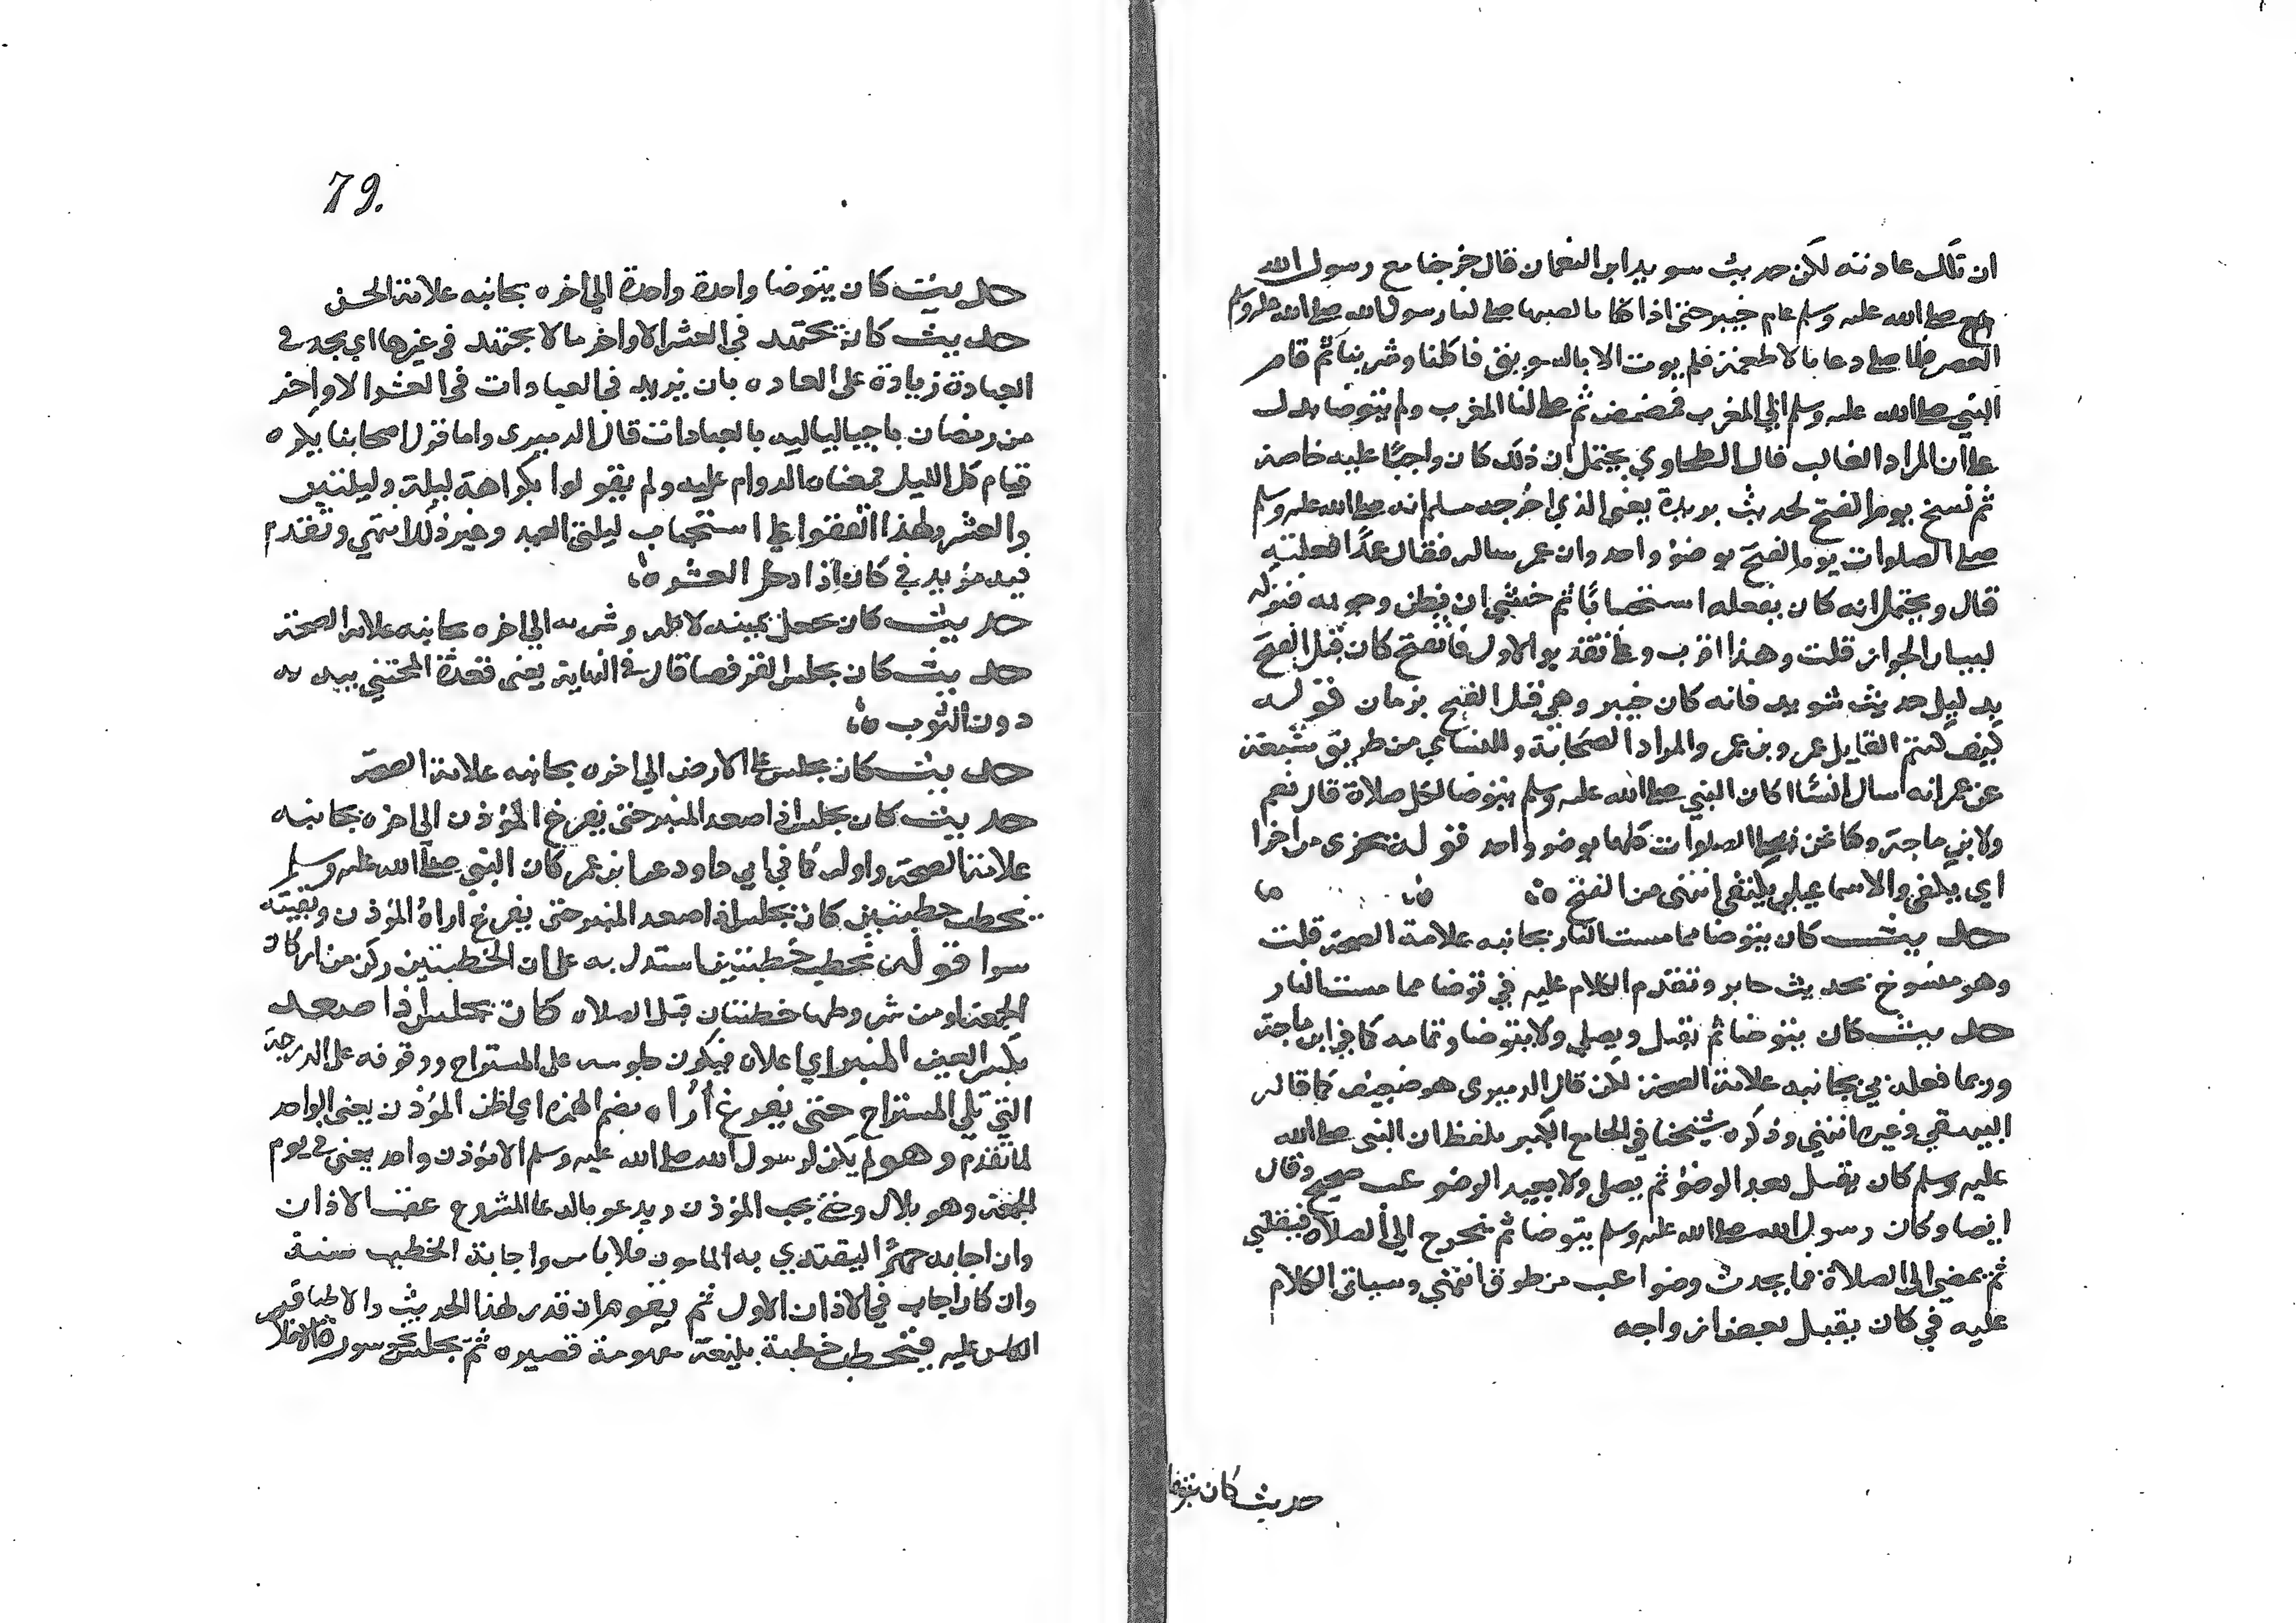 ان تلك عادته لكن حديث سويد ابن النعمان قال خرجنا مع رسول الله
صلى الله عليه وسلم عام خيبر حتى اذا كنا بالصهبا صلى لنا رسول الله صلى الله عليه وسلم
العصر فلما صلى دعا بالاطعمة فلم يوت الا بالسويق فاكلنا وشربنا ثم قام
النبي صلى الله عليه وسلم الى المغرب فمضمض ثم صلى لنا المغرب ولم يتوضا يدل
على ان المراد الغالب قال الطحاوي يحتمل ان ذلك كان واجبًا عليه خاصة
ثم نسخ يوم الفتح لحديث بريدة يعني الذي اخرجه مسلم انه صلى الله عليه وسلم
صلى الصلوات يوم الفتح بوضوء واحد وان عمر ساله فقال عمدًا فعلته
قال ويحتمل انه كان يفعله استحبابًا ثم خشي ان يظن وجوبه فتركه
لبيان الجواز قلت وهذا اقرب وعلى تقدير الاول فالنسخ كان قبل الفتح
بدليل حديث سويد فانه كان خيبر وهي قبل الفتح بزمان قوله
كيف كنتم القايل عمرو بن عمر والمراد الصحابة وللنساي من طريق شعبة
عن عمر انه سال انسًا اكان النبي صلى الله عليه وسلم يتوضا لكل صلاة قال نعم
ولابن ماجة وكنا نحن نصلي الصلوات كلها بوضو واحد قوله يجزي من اجزا
اي يكفي والاسماعيلي يكفي انتهى من الفتح
حديث كان يتوضا مما مست النار بجانبه علامة الصحة قلت
وهو منسوخ بحديث جابر وتقدم الكلام عليه في توضا مما مست النار
حديث كان يتوضا ثم يقبل ويصلي ولا يتوضا وتمامه كما في ابن ماجة
وربما فعله بي بجانبه علامة الصحة لكن قال الدميري هو ضعيف كما قاله
البيهقي وغيره انتهى وذكره شيخنا في الجامع الكبير بلفظ ان النبي صلى الله
عليه وسلم كان يقبل بعد الوضوء ثم يصلي ولا يعيد الوضو عب صحيح وقال
ايضا وكان رسول الله صلى الله عليه وسلم يتوضا ثم يخرج الى الصلاة فيقبلني
ثم يمضي الى الصلاة فما يحدث وضوا عب من طرق انتهى وسياتي الكلام
عليه في كان يقبل بعض ازواجه
حديث كان يتوضا
79.
حديث كان يتوضا واحدة واحدة الى اخره بجانبه علامة الحسن
حديث كان يجتهد في العشر الاواخر مالا يجتهد في غيرها اي يجد في
العبادة زيادة على العادة بان يزيد في العبادات في العشر الاواخر
من رمضان باحيا لياليه بالعبادات قال الدميري واما قول اصحابنا يكره
قيام كل الليل فمعناه الدوام عليه ولم يقولوا بكراهة ليلة وليلتين
والعشر ولهذا اتفقوا على استحباب ليلتي العيد وغير ذلك انتهى وتقدم
فيه مزيد في كان اذا دخل العشر
حديث كان يجعل يمينه لاكله وشربه الى اخره بجانبه علامة الصحة
حديث كان يجلس القرفصا قال في النهاية يعني قعدة المحتبي بيديه
دون الثوب
حديث كان يجلس على الارض الى اخره بجانبه علامة الصحة
حديث كان يجلس اذا صعد المنبر حتى يفرغ المؤذن الى اخره بجانبه
علامة الصحة واوله كما في ابي داود عن ابن عمر كان النبي صلى الله عليه وسلم
يخطب خطبتين كان يجلس اذا صعد المنبر حتى يفرغ اراه المؤذن وبقيته
سوا قوله يخطب خطبتين استدل به على ان الخطبتين ركن من اركان
الجمعة او من شروطها خطبتان قبل الصلاه كان يجلس اذا صعد
بكسر العين المنبر اي اعلاه فيكون جلوسه على المستراح ووقوفه على الدرجة
التي تلي المستراح حتى يفرغ أُراه بضم الهمزة اي اظن المؤذن يعني الواحد
لما تقدم وهو لم يكن لرسول الله صلى الله عليه وسلم الا مؤذن واحد يعني في يوم
الجمعة وهو بلال وحتى يجيب المؤذن ويدعو بالدعا المشروع عقب الاذان
وان اجابه جهرًا ليقتدي به المامون فلا باس واجابة الخطيب سنة
وان كان اجاب في الاذان الاول ثم يقوم ان قدر لهذا الحديث والاطباق
الناس عليه فيخطب خطبة بليغة مفهومة قصيرة ثم يجلس نحو سورة الاخلاص